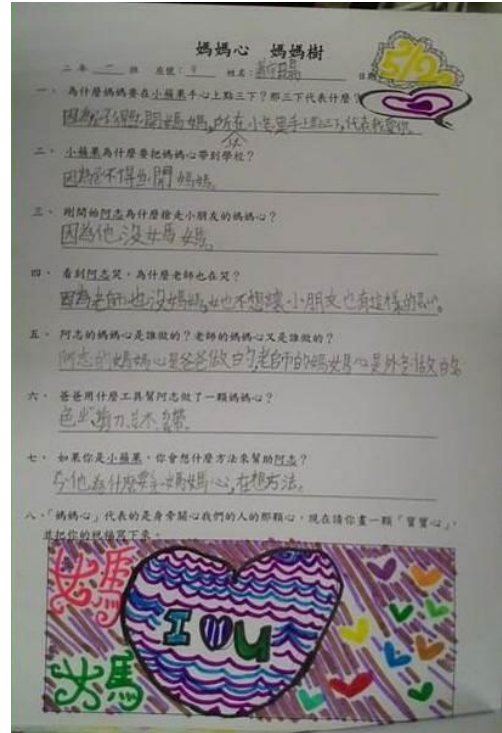 媽媽心 媽媽樹
二年 一 班 座號：9 姓名：
5/20
一、為什麼媽媽要在小蘋果手心上點三下？那三下代表什麼？
因為捨不得離開媽媽,所在小蘋果手上點三下,代表我愛你。
以
二、小蘋果為什麼要把媽媽心帶到學校？
因為捨不得離開媽媽。
三、剛開始阿志為什麼搶走小朋友的媽媽心？
因為他沒媽媽。
四、看到阿志哭，為什麼老師也在哭？
因為老師也沒媽媽,她也不想讓小朋友也有這樣的心。
五、阿志的媽媽心是誰做的？老師的媽媽心又是誰做的？
阿志的媽媽心是爸爸做的,老師的媽媽心是外婆做的
六、爸爸用什麼工具幫阿志做了一顆媽媽心？
剪刀
七、如果你是小蘋果，你會想什麼方法來幫助阿志？
他為什麼要拿媽媽心,在想方法。
八、「媽媽心」代表的是身旁關心我們的人的那顆心，現在請你畫一顆「寶寶心」，
並把你的祝福寫下來。
媽媽
I U